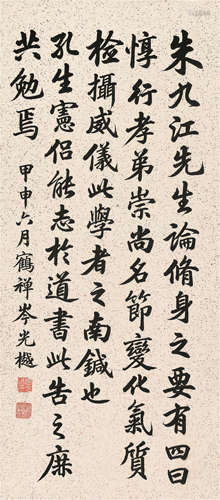 朱九江先生論脩身之要有四曰
惇行孝弟崇尚名節變化氣質
檢攝威儀此學者之南鍼也
孔生憲侣能志於道書此告之庶
共勉焉
甲申六月鶴禪岑光樾